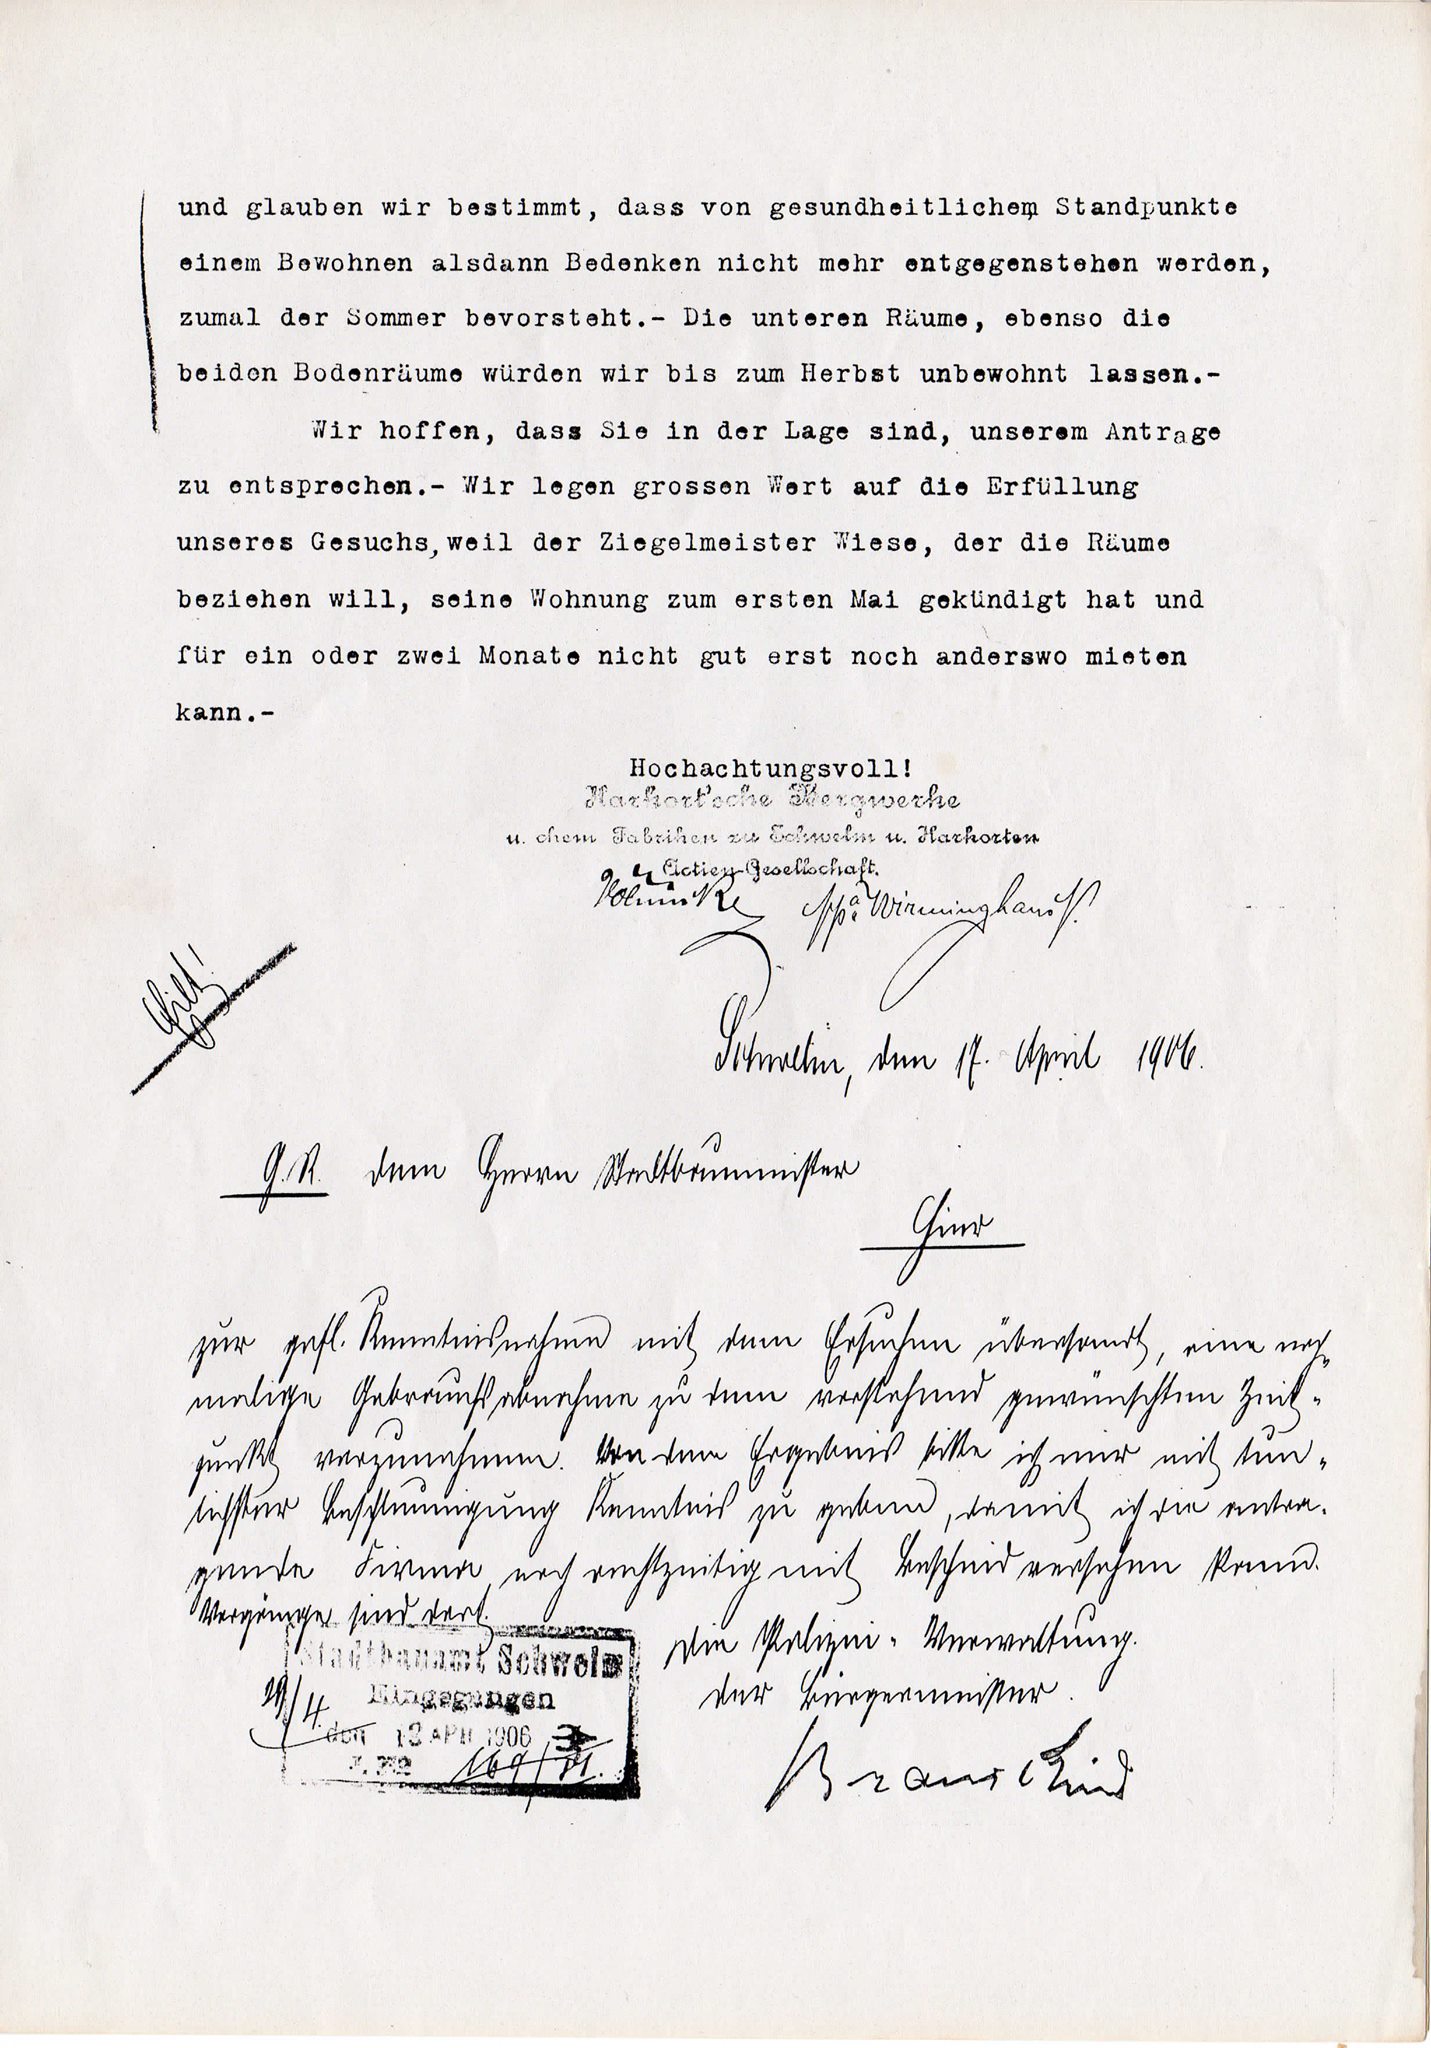 und glauben wir bestimmt, dass von gesundheitlichem Standpunkte
einem Bewohnen alsdann Bedenken nicht mehr entgegenstehen werden,
zumal der Sommer bevorsteht.- Die unteren Räume, ebenso die
beiden Bodenräume würden wir bis zum Herbst unbewohnt lassen.-
Wir hoffen, dass Sie in der Lage sind, unserem Antrage
zu entsprechen.- Wir legen grossen Wert auf die Erfüllung
unseres Gesuchs, weil der Ziegelmeister Wiese, der die Räume
beziehen will, seine Wohnung zum ersten Mai gekündigt hat und
für ein oder zwei Monate nicht gut erst noch anderswo mieten
kann.-
Hochachtungsvoll!
Harkort'sche Bergwerke
u. chem Fabriken zu Schwelm u. Harkorten
Actien-Gesellschaft.
ppa Wirminghaus.
Eilt!
Schwelm, den 17. April 1906.
G.R. dem Herrn Stadtbaumeister
Hier
zur gefl. Kenntnisnahme mit dem Ersuchen übersandt, eine noch-
malige Gebrauchsabnahme zu dem vorstehend gewünschten Zeit-
punkt vorzunehmen. Von dem Ergebnis bitte ich mir mit tun-
lichster Beschleunigung Kenntnis zu geben, damit ich die antra-
gende Firma noch rechtzeitig mit Bescheid versehen kann.
Vorgänge sind dort.
Die Polizei-Verwaltung.
Der Bürgermeister.
Stadtbauamt Schwelm
Eingegangen
19/4.
den APR 1906
169/